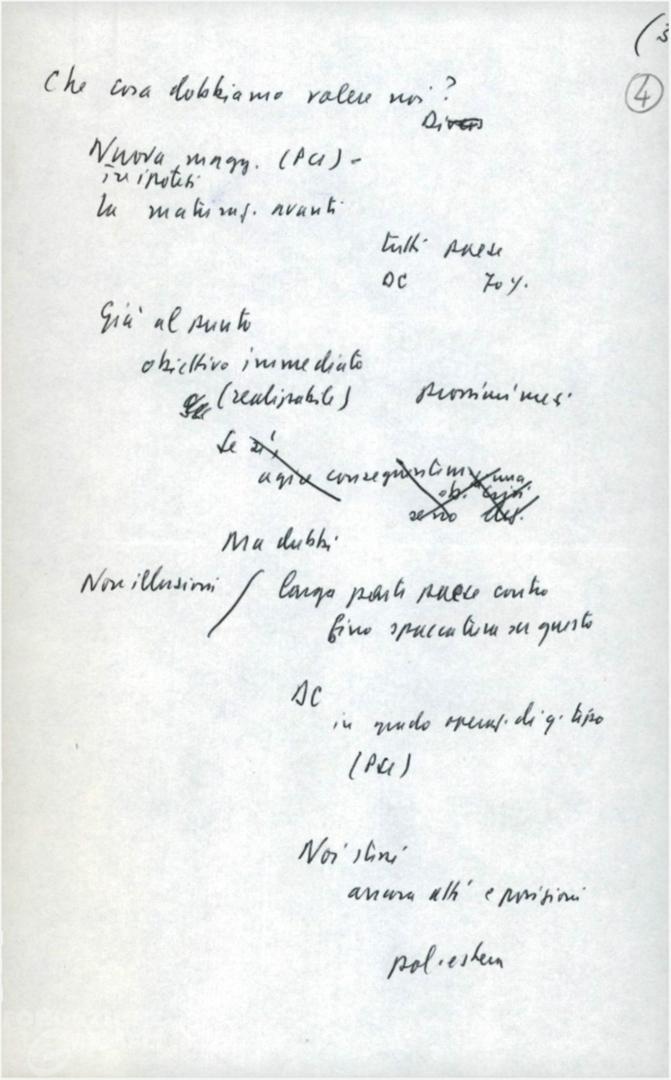 (3
4
Che cosa dobbiamo volere noi?
Nuova magg. (PCI) -
in ipotesi
la maturaz. avanti
tutti paese
DC 70%.
Già al punto
obiettivo immediato
(realizzabile) prossimi mesi
Se sì,
agire conseguentem. una
ob. crisi
serio
Ma dubbi
Non illusioni / larga parte paese contro
fino spaccatura su questo
DC
in grado operaz. di q. tipo
(PSI)
Noi stessi
ancora atti e posizioni
pol. estera